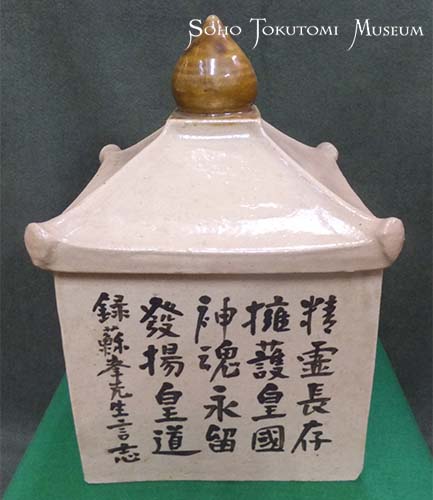 SOHO TOKUTOMI MUSEUM
精霊長存
擁護皇國
神魂永留
發揚皇道
録蘇峯先生言志